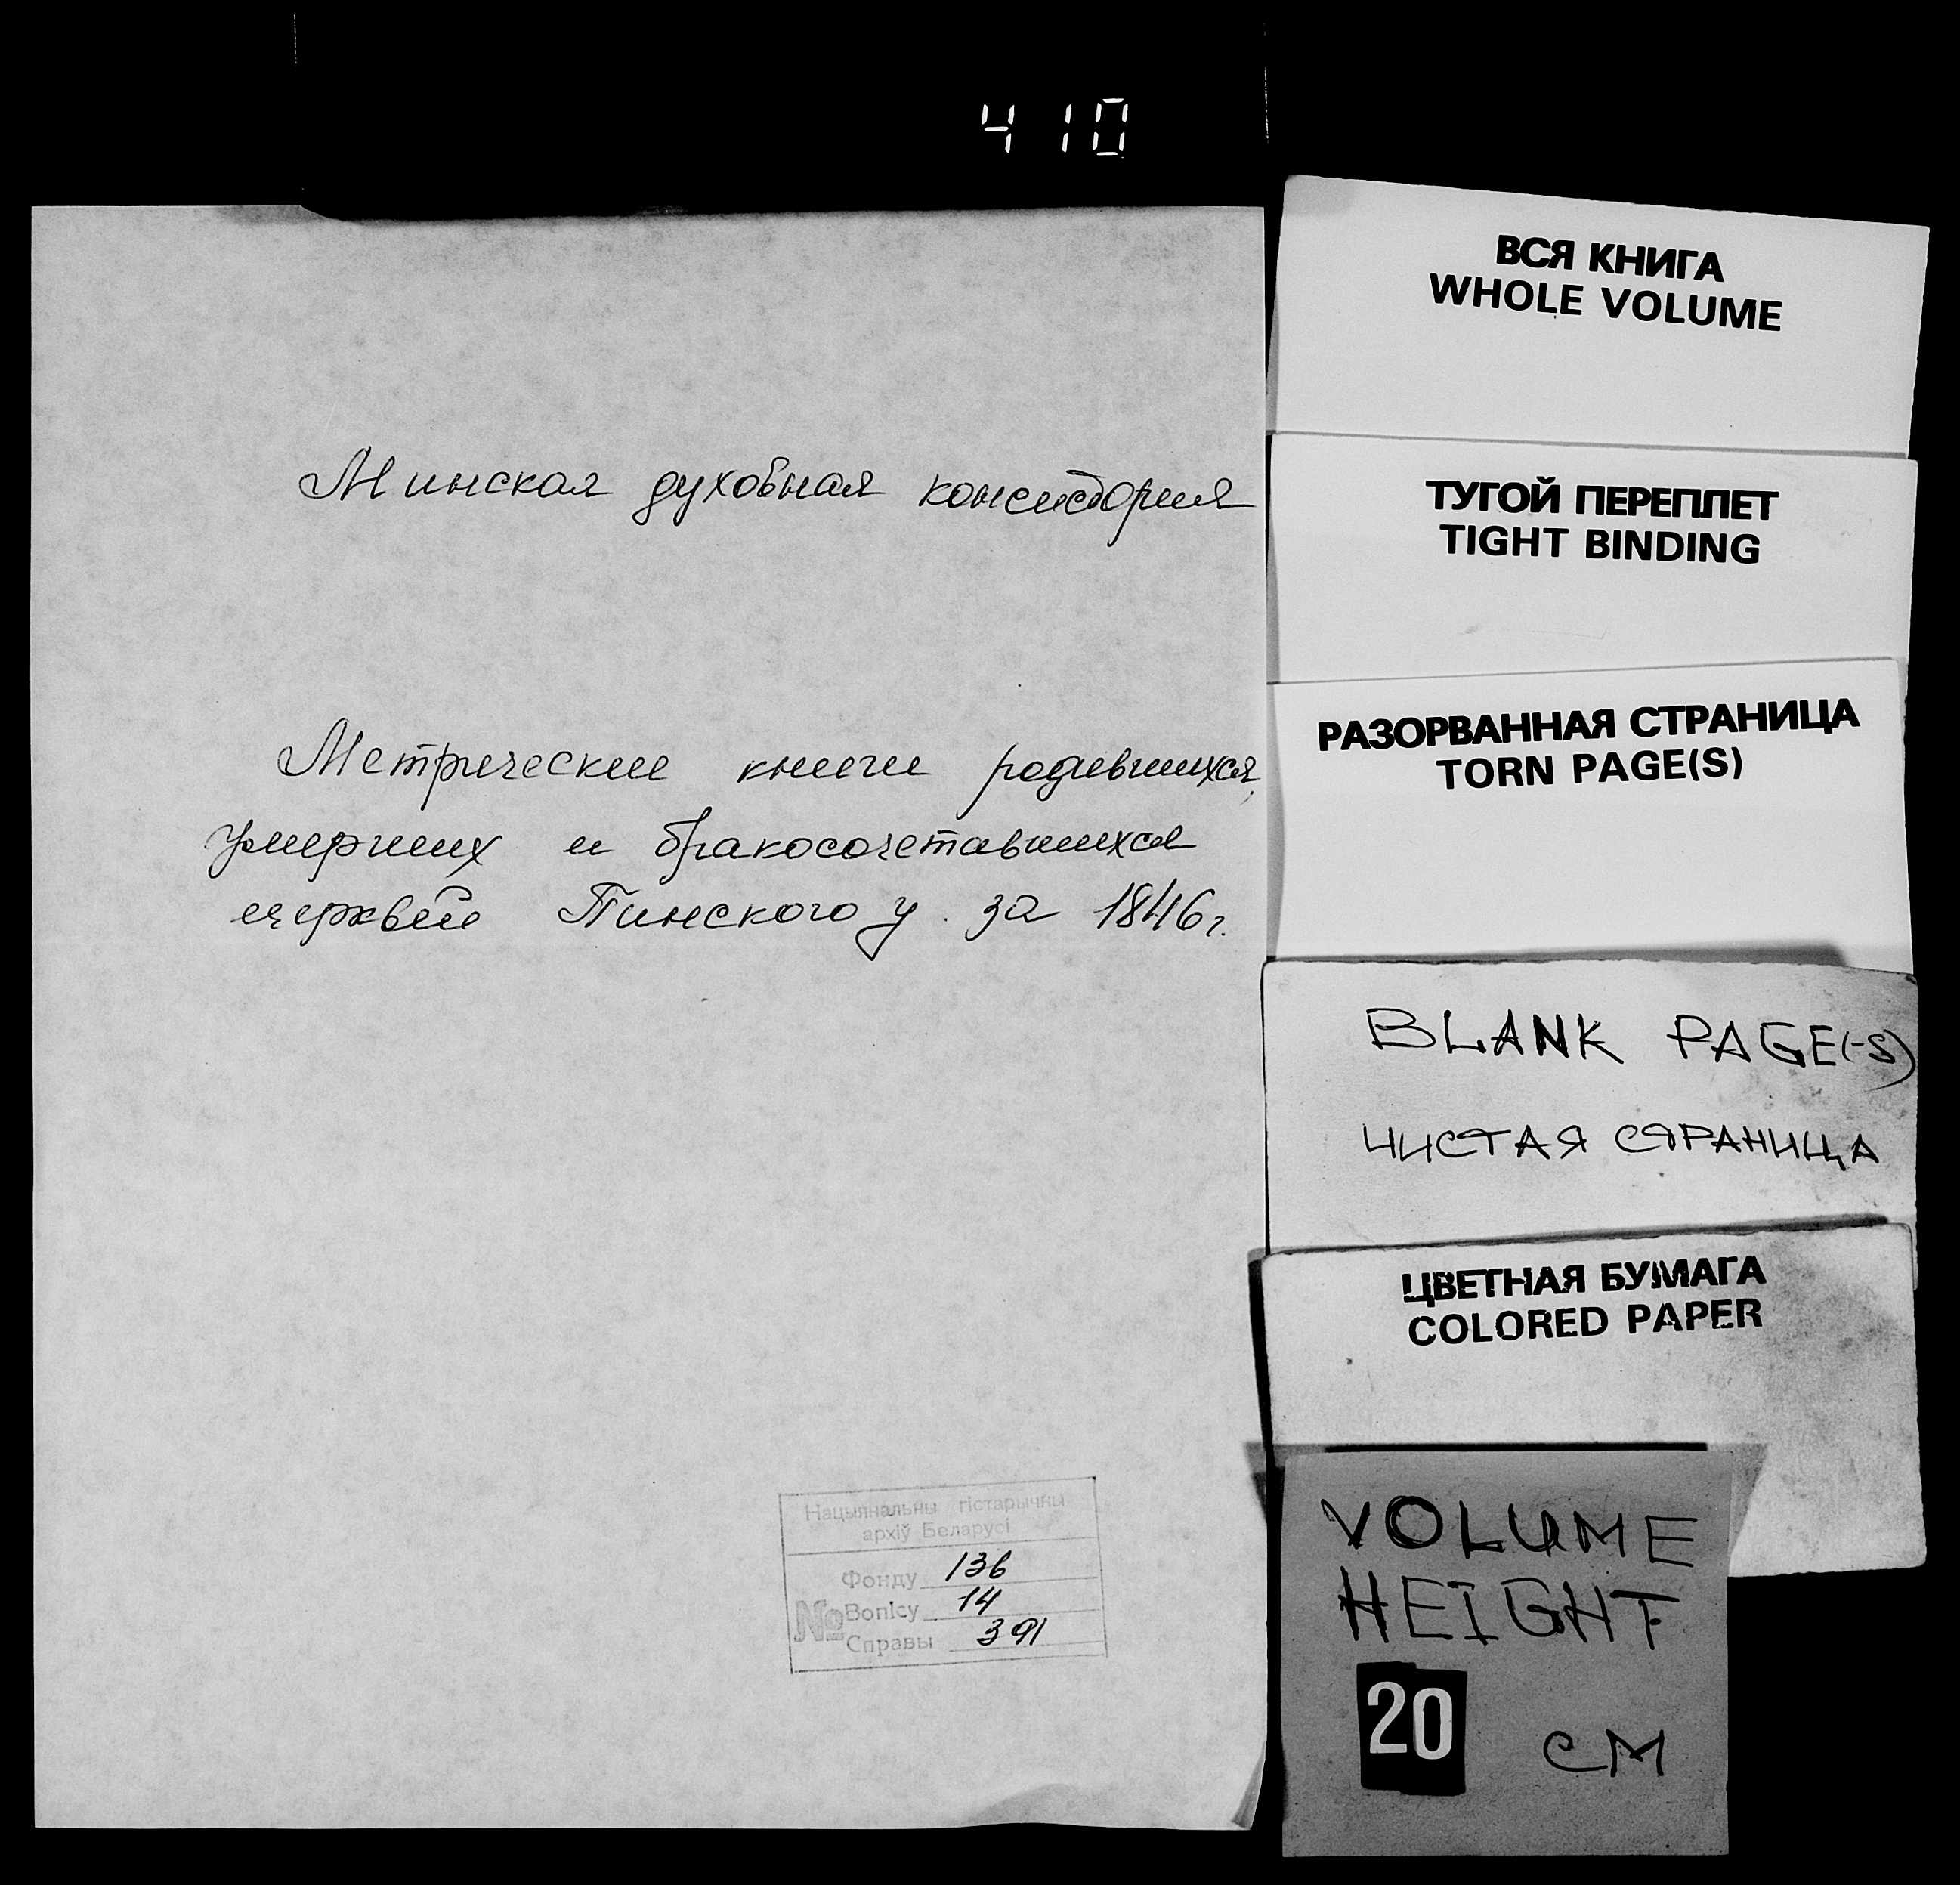 410
Минская духовная консистория
Метрические книги родившихся,
умерших и бракосочетавшихся
церквей Пинского у. за 1846 г.
Нацыянальны гістарычны
архіў Беларусі
Фонду 136
№ Вопісу 14
Справы 391
ВСЯ КНИГА
WHOLE VOLUME
ТУГОЙ ПЕРЕПЛЕТ
TIGHT BINDING
РАЗОРВАННАЯ СТРАНИЦА
TORN PAGE(S)
BLANK PAGE(-S)
ЧИСТАЯ СТРАНИЦА
ЦВЕТНАЯ БУМАГА
COLORED PAPER
VOLUME
HEIGHT
20 CM